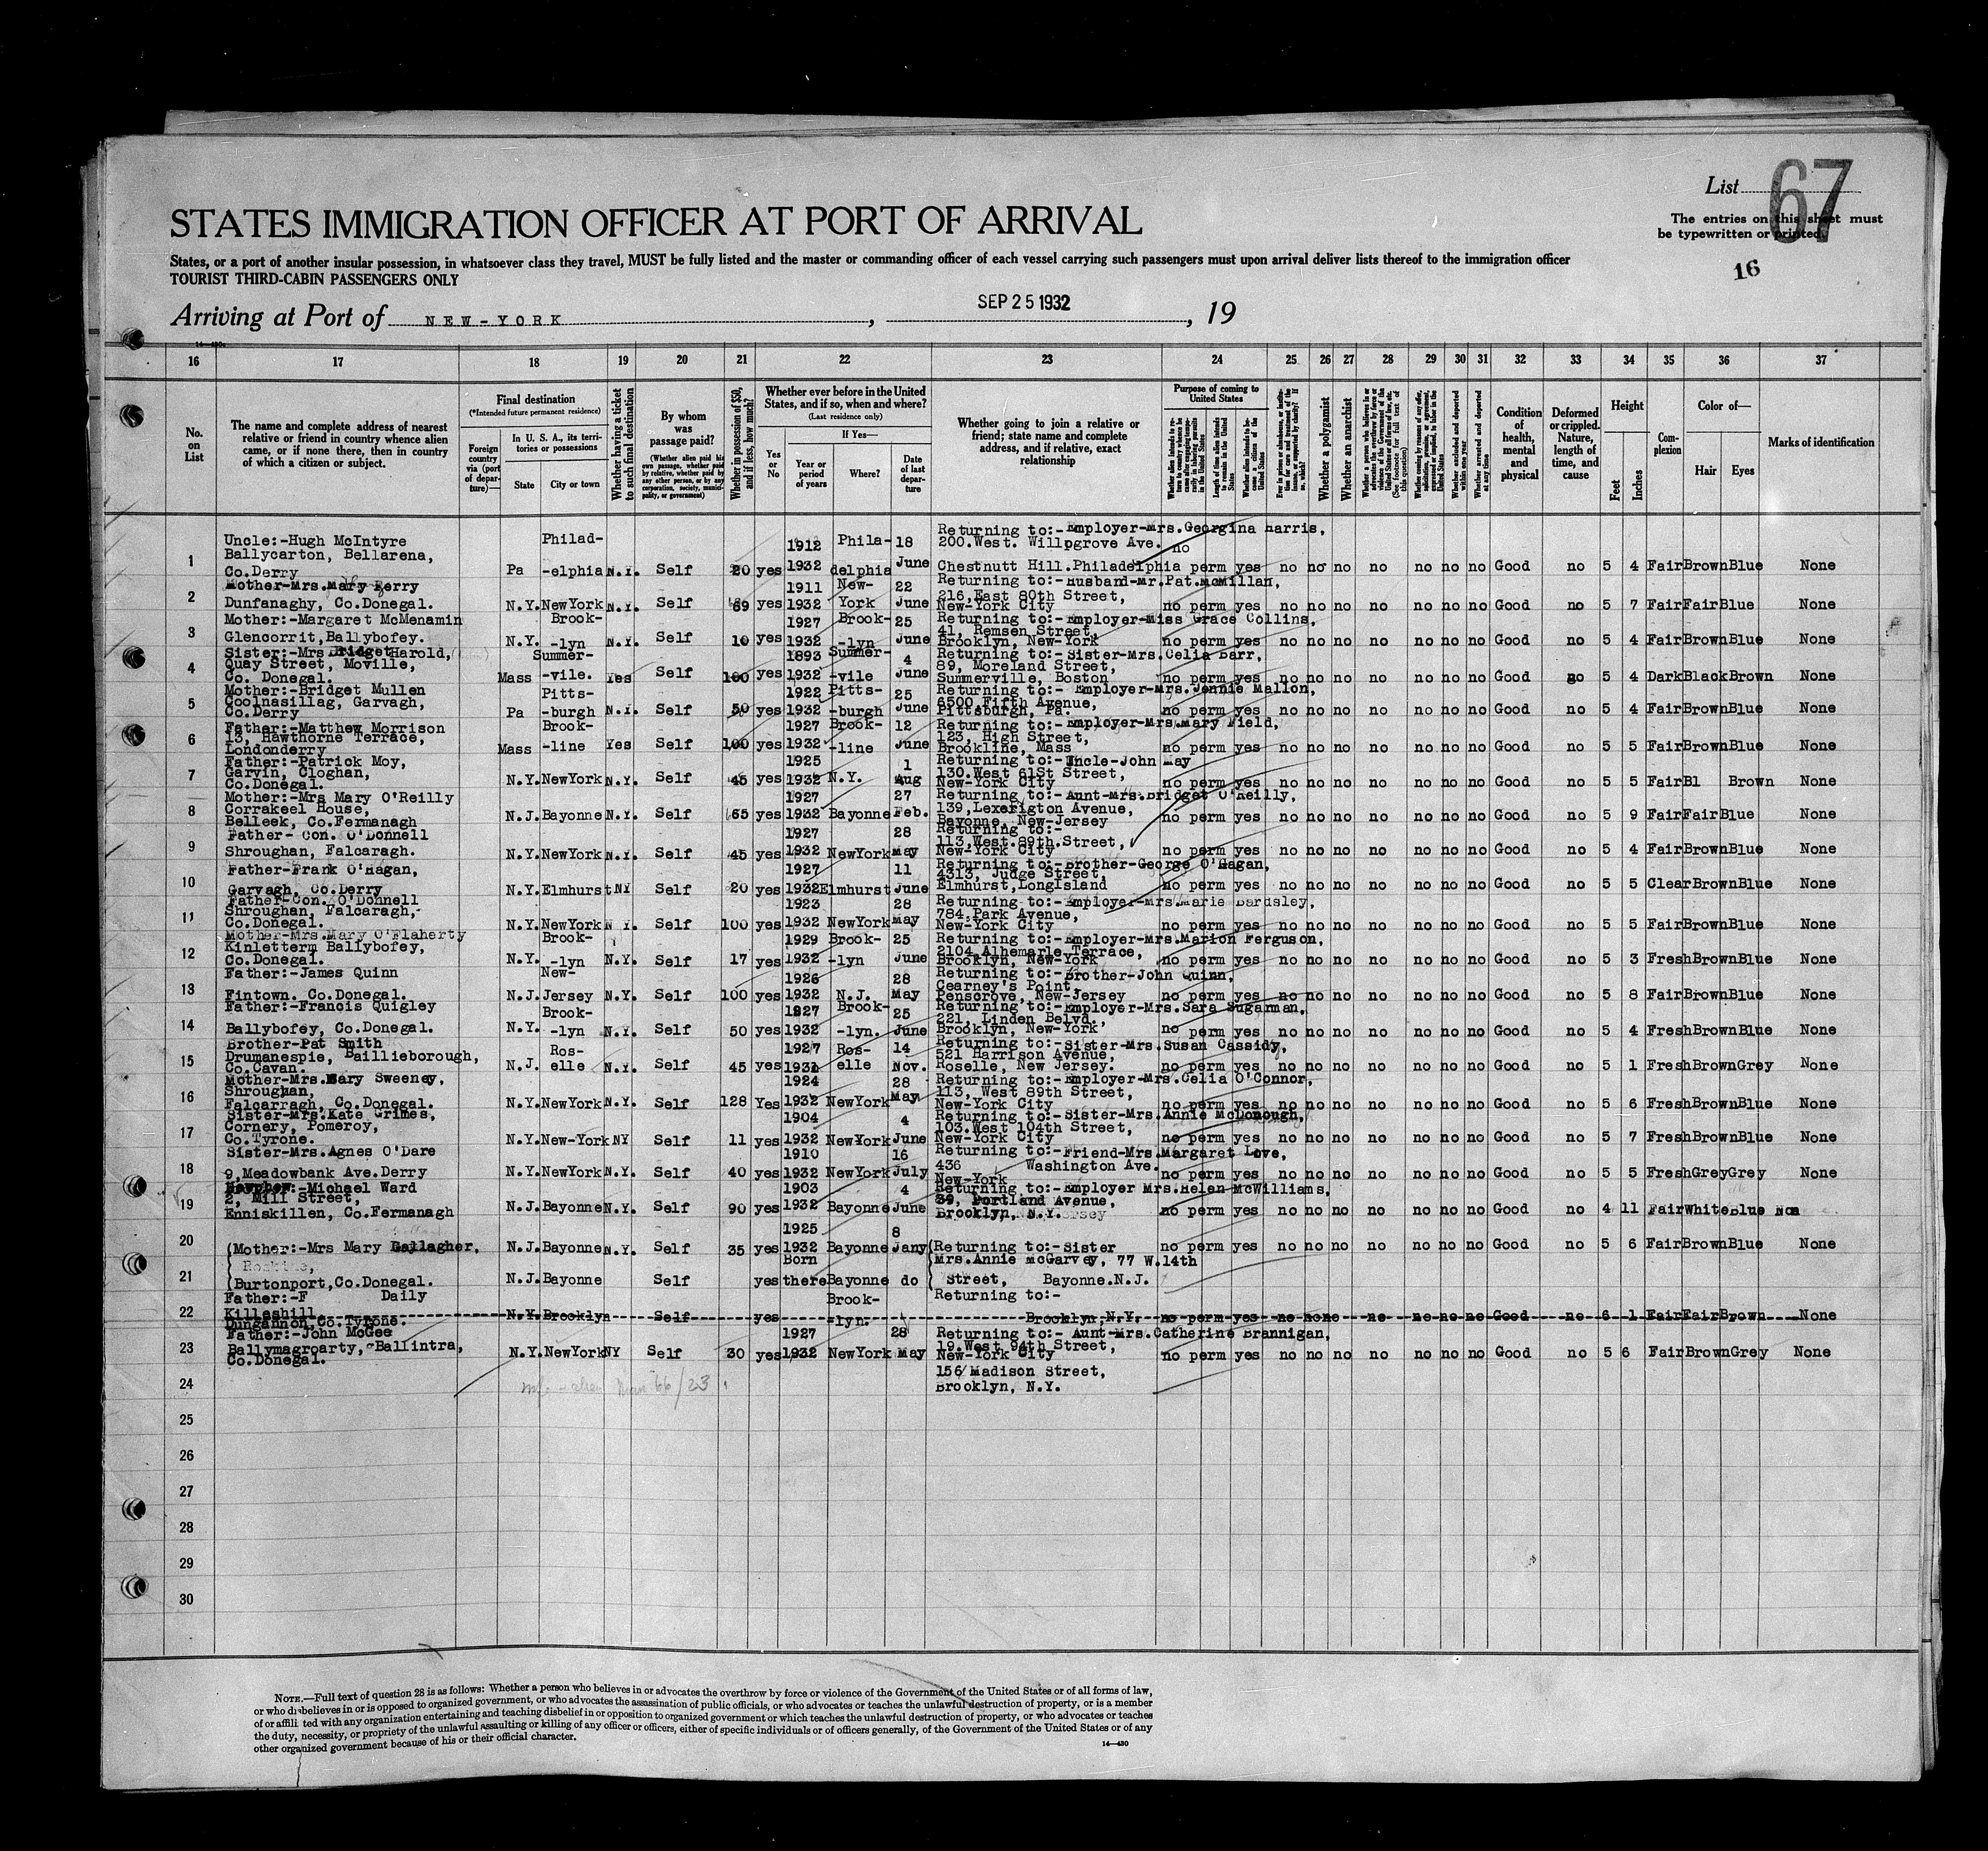 List 67
STATES IMMIGRATION OFFICER AT PORT OF ARRIVAL
The entries on this sheet must
be typewritten or printed.
States, or a port of another insular possession, in whatsoever class they travel, MUST be fully listed and the master or commanding officer of each vessel carrying such passengers must upon arrival deliver lists thereof to the immigration officer
TOURIST THIRD-CABIN PASSENGERS ONLY
16
Arriving at Port of NEW-YORK, SEP 25 1932, 19
16 17 18 19 20 21 22 23 24 25 26 27 28 29 30 31 32 33 34 35 36 37
No. on List
The name and complete address of nearest relative or friend in country whence alien came, or if none there, then in country of which a citizen or subject.
Final destination
(*Intended future permanent residence)
Foreign country via (port of departure)—
In U. S. A., its territories or possessions
State
City or town
Whether having a ticket to such final destination
By whom was passage paid?
(Whether alien paid his own passage, whether paid by relative, whether paid by any other person, or by any corporation, society, municipality, or government)
Whether in possession of $50, and if less, how much?
Whether ever before in the United States, and if so, when and where?
(Last residence only)
Yes or No
If Yes—
Year or period of years
Where?
Date of last departure
Whether going to join a relative or friend; state name and complete address, and if relative, exact relationship
Purpose of coming to United States
Length of time alien intends to remain in the United States
Whether alien intends to become a citizen of the United States
Whether a polygamist
Whether an anarchist
Whether excluded and deported within one year
Whether arrested and deported at any time
Condition of health, mental and physical
Deformed or crippled. Nature, length of time, and cause
Height
Feet
Inches
Complexion
Color of—
Hair
Eyes
Marks of identification
1 Uncle:-Hugh McIntyre Ballycarton, Bellarena, Co.Derry Pa Philad- -elphia N.Y. Self 20 yes 1912 1932 Phila- delphia 18 June Returning to:-Employer-Mrs.Georgina Harris, 200.West. Willogrove Ave. Chestnutt Hill.Philadelphia no perm yes no no no no no no no Good no 5 4 Fair Brown Blue None
2 Mother-Mrs.Mary Perry Dunfanaghy, Co.Donegal. N.Y. NewYork N.Y. Self 69 yes 1911 1932 New- York 22 June Returning to:-Husband-Mr.Pat.McMillan, 216,East 80th Street, New-York City no perm yes no no no no no no no Good no 5 7 Fair Fair Blue None
3 Mother:-Margaret McMenamin Glencorrit,Ballybofey. N.Y. Brook- -lyn N.Y. Self 10 yes 1927 1932 Brook- -lyn 25 June Returning to:-Employer-Miss Grace Collins, 41, Remsen Street, Brooklyn, New-York no perm yes no no no no no no no Good no 5 4 Fair Brown Blue None
4 Sister:-Mrs Bridget Harold, Quay Street, Moville, Co. Donegal. Mass Summer- -vile. Yes Self 100 yes 1893 1932 Summer- -vile 4 June Returning to:-Sister-Mrs.Celia Barr, 89, Moreland Street, Summerville, Boston no perm yes no no no no no no no Good no 5 4 Dark Black Brown None
5 Mother:-Bridget Mullen Coolnasillag, Garvagh, Co.Derry Pa Pitts- -burgh N.Y. Self 50 yes 1922 1932 Pitts- -burgh 25 June Returning to:- Employer-Mrs.Jennie Mallon, 6500,Fifth Avenue, Pittsburgh, Pa. no perm yes no no no no no no no Good no 5 4 Fair Brown Blue None
6 Father:-Matthew Morrison 13, Hawthorne Terrace, Londonderry Mass Brook- -line Yes Self 100 yes 1927 1932 Brook- -line 12 June Returning to:-Employer-Mrs.Mary Field, 123, High Street, Brookline, Mass no perm yes no no no no no no no Good no 5 5 Fair Brown Blue None
7 Father:-Patrick Moy, Garvin, Cloghan, Co.Donegal. N.Y. NewYork N.Y. Self 45 yes 1925 1932 N.Y. 1 Aug Returning to:-Uncle-John May 130.West 61St Street, New-York City no perm yes no no no no no no no Good no 5 5 Fair Bl Brown None
8 Mother:-Mrs Mary O'Reilly Corrakeel House, Belleek, Co.Fermanagh N.J. Bayonne N.Y. Self 65 yes 1927 1932 Bayonne 27 Feb. Returning to:-Aunt-Mrs.Bridget O'Reilly, 139,Lexington Avenue, Bayonne, New-Jersey no perm yes no no no no no no no Good no 5 9 Fair Fair Blue None
9 Father- Con. O'Donnell Shroughan, Falcaragh. N.Y. NewYork N.Y. Self 45 yes 1927 1932 NewYork 28 May Returning to:- 113,West.89th.Street, New-York City no perm yes no no no no no no no Good no 5 4 Fair Brown Blue None
10 Father-Frank O'Hagan, Garvagh, Co.Derry N.Y. Elmhurst NY Self 20 yes 1927 1932 Elmhurst 11 June Returning to:-Brother-George O'Hagan, 4313, Judge Street, Elmhurst,LongIsland no perm yes no no no no no no no Good no 5 5 Clear Brown Blue None
11 Father-Con. O'Donnell Shroughan, Falcaragh, Co.Donegal. N.Y. NewYork N Y. Self 100 yes 1923 1932 NewYork 28 May Returning to:-Employer-Mrs.Marie Bardsley, 784,Park Avenue, New-York City no perm yes no no no no no no no Good no 5 5 Fair Brown Blue None
12 Mother-Mrs.Mary O'Flaherty Kinletterm Ballybofey, Co.Donegal. N.Y. Brook- -lyn N.Y. Self 17 yes 1929 1932 Brook- -lyn 25 June Returning to:-Employer-Mrs.Marion Ferguson, 2104,Albemarle Terrace, Brooklyn, New-York no perm yes no no no no no no no Good no 5 3 Fresh Brown Blue None
13 Father:-James Quinn Fintown. Co.Donegal. N.J. New- Jersey N.Y. Self 100 yes 1926 1932 N.J. 28 May Returning to:-Brother-John Quinn, Cearney's Point, Penscrove, New-Jersey no perm yes no no no no no no no Good no 5 8 Fair Brown Blue None
14 Father:-Francis Quigley Ballybofey, Co.Donegal. N.Y. Brook- -lyn N.Y. Self 50 yes 1927 1932 Brook- -lyn. 25 June Returning to:-Employer-Mrs.Sara Sugarman, 221, Linden Belvd., Brooklyn, New-York no perm yes no no no no no no no Good no 5 4 Fresh Brown Blue None
15 Brother-Pat Smith Drumanespie, Baillieborough, Co.Cavan. N.J. Ros- elle N.Y. Self 45 yes 1927 1931 Ros- elle 14 Nov. Returning to:-Sister-Mrs.Susan Cassidy, 521 Harrison Avenue, Roselle, New Jersey. no perm yes no no no no no no no Good no 5 1 Fresh Brown Grey None
16 Mother-Mrs.Mary Sweeney, Shroughan, Falcarragh, Co.Donegal. N.Y. NewYork N.Y. Self 128 Yes 1924 1932 NewYork 28 May Returning to:-Employer-Mrs.Celia O'Connor, 113, West 89th Street, New-York City no perm yes no no no no no no no Good no 5 6 Fresh Brown Blue None
17 Sister-Mrs.Kate Grimes, Cornery, Pomeroy, Co.Tyrone. N.Y. New-York NY Self 11 yes 1904 1932 NewYork 4 June Returning to:-Sister-Mrs.Annie McDonough, 103.West 104th Street, New-York City no perm yes no no no no no no no Good no 5 7 Fresh Brown Blue None
18 Sister-Mrs.Agnes O'Dare 9,Meadowbank Ave.Derry N.Y. NewYork N.Y. Self 40 yes 1910 1932 NewYork 16 July Returning to:-Friend-Mrs.Margaret Love, 436 Washington Ave. New-York no perm yes no no no no no no no Good no 5 5 Fresh Grey Grey None
19 Nephew:-Michael Ward 2, Mill Street, Enniskillen, Co.Fermanagh N.J. Bayonne N.Y. Self 90 yes 1903 1932 Bayonne 4 June Returning to:-Employer Mrs.Helen McWilliams, 39, Portland Avenue, Brooklyn, N.Y. no perm yes no no no no no no no Good no 4 11 Fair White Blue
20 (Mother:-Mrs Mary Gallagher, N.J. Bayonne N.Y. Self 35 yes 1925 1932 Bayonne 8 Jany (Returning to:-Sister no perm yes no no no no no no no Good no 5 6 Fair Brown Blue None
21 Burtonport,Co.Donegal. N.J. Bayonne Self yes Born there Bayonne do Mrs.Annie McGarvey, 77 W.14th Street, Bayonne.N.J.
22 Father:-F Daily Killeshill, Dungannon,Co.Tyrone. N.Y. Brooklyn Self yes Brook- -lyn. Returning to:- Brooklyn,N.Y. no perm yes no no no no no no no Good no 6 1 Fair Fair Brown None
23 Father:-John McGee Ballymagroarty, Ballintra, Co.Donegal. N.Y. NewYork NY Self 30 yes 1927 1932 NewYork 28 May Returning to:- Aunt-Mrs.Catherine Brannigan, 19.West 94th Street, New-York City no perm yes no no no no no no no Good no 5 6 Fair Brown Grey None
24 156 Madison Street, Brooklyn, N.Y.
25
26
27
28
29
30
NOTE.—Full text of question 28 is as follows: Whether a person who believes in or advocates the overthrow by force or violence of the Government of the United States or of all forms of law,
or who disbelieves in or is opposed to organized government, or who advocates the assassination of public officials, or who advocates or teaches the unlawful destruction of property, or is a member
of or affili ted with any organization entertaining and teaching disbelief in or opposition to organized government or which teaches the unlawful destruction of property, or who advocates or teaches
the duty, necessity, or propriety of the unlawful assaulting or killing of any officer or officers, either of specific individuals or of officers generally, of the Government of the United States or of any
other organized government because of his or their official character.
14—430